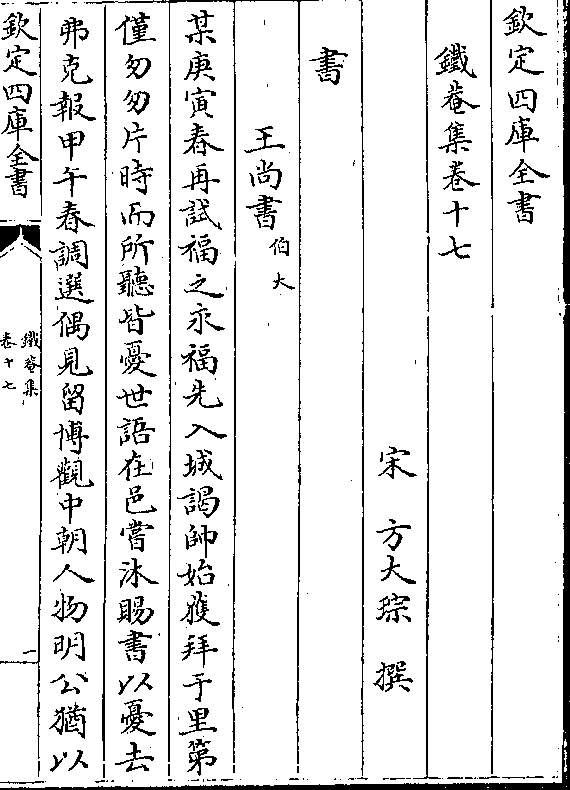 欽定四庫全書
鐵菴集卷十七
宋 方大琮 撰
書
王尚書伯大
某庚寅春再試福之永福先入城謁帥始獲拜于里第
僅匆匆片時而所聽皆憂世語在邑嘗沐賜書以憂去
弗克報甲午春調選偶見留博觀中朝人物明公猶以
欽定四庫全書
鐵菴集
卷十七
一